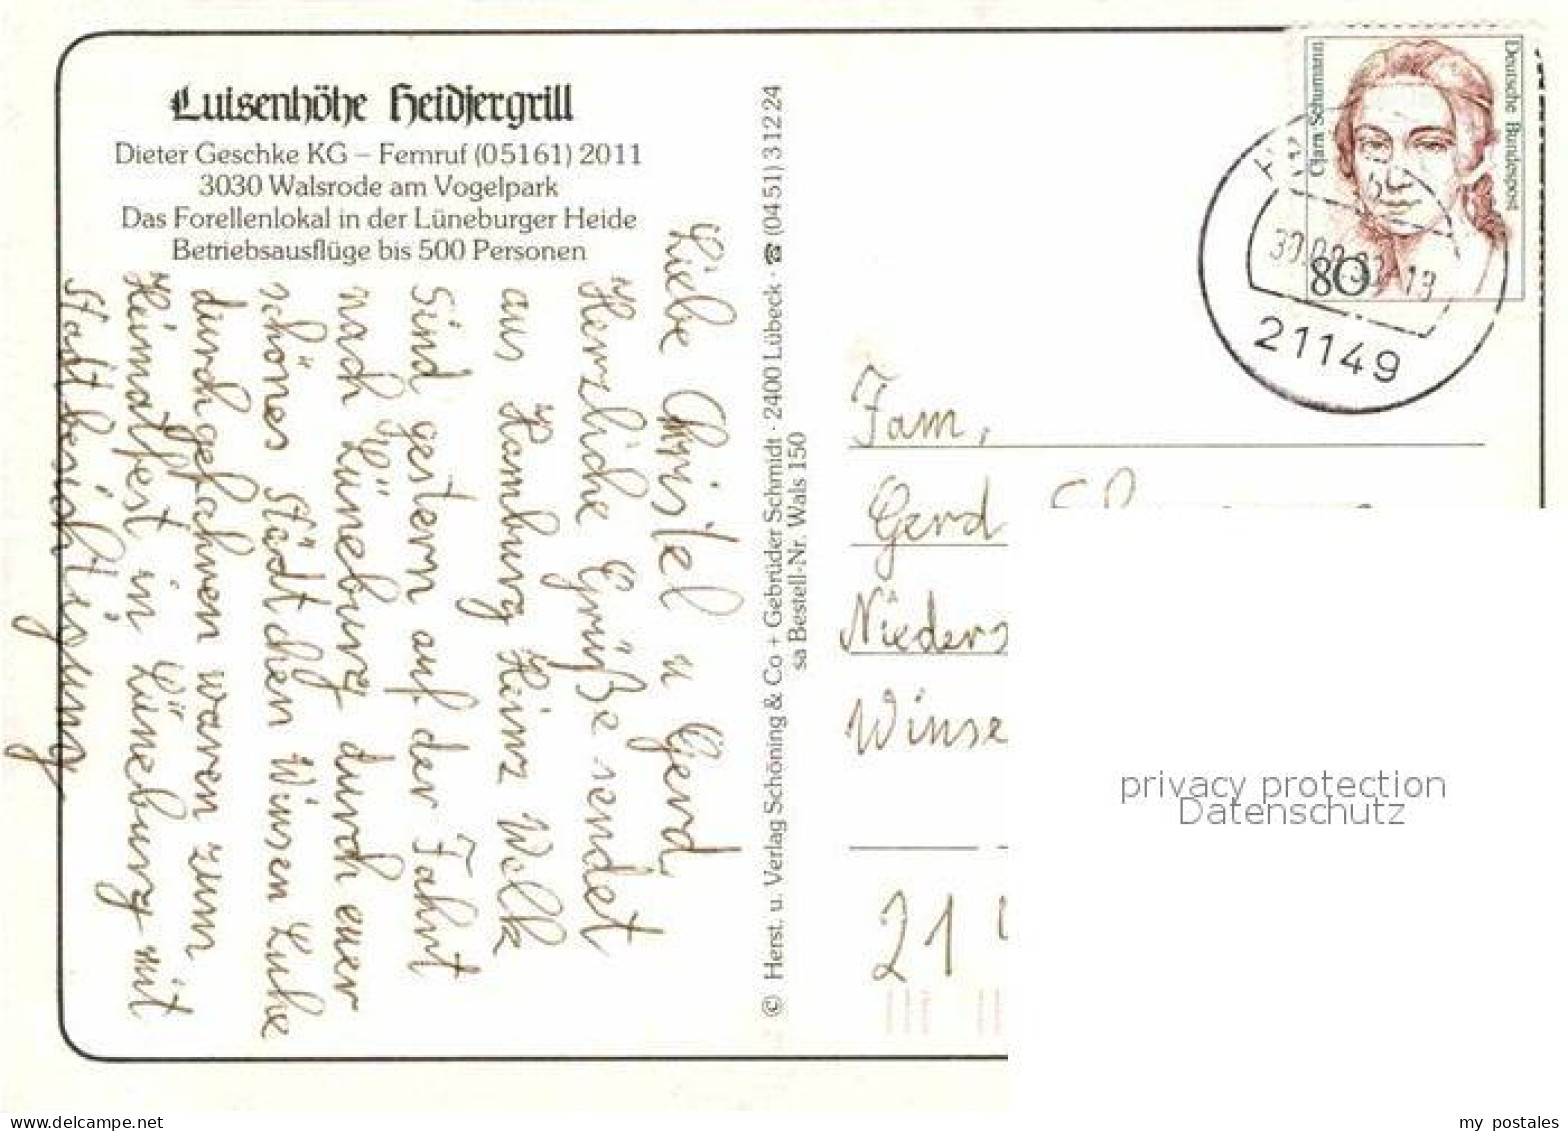 Luisenhöhe Heidjergrill
Dieter Geschke KG – Fernruf (05161) 2011
3030 Walsrode am Vogelpark
Das Forellenlokal in der Lüneburger Heide
Betriebsausflüge bis 500 Personen
Liebe Christel u Gerd,
Herzliche Grüße sendet
aus Hamburg Heinz Wolk
Sind gestern auf der Fahrt
nach Lüneburg durch euer
schönes Städtchen Winsen Luhe
durchgefahren waren zum
Heimatfest in Lüneburg mit
Stadtbesichtigung
© Herst. u. Verlag Schöning & Co + Gebrüder Schmidt · 2400 Lübeck · ☎ (0451) 31224
sa Bestell-Nr. Wals 150
Clara Schumann
Deutsche Bundespost
80
21149
Fam,
Gerd
Nieders
Winse
21
privacy protection
Datenschutz
my postales